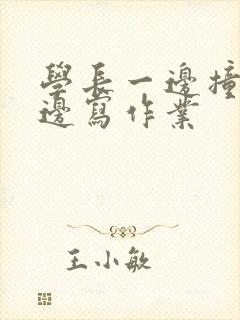 學長一邊撞
邊寫作業
王小敏